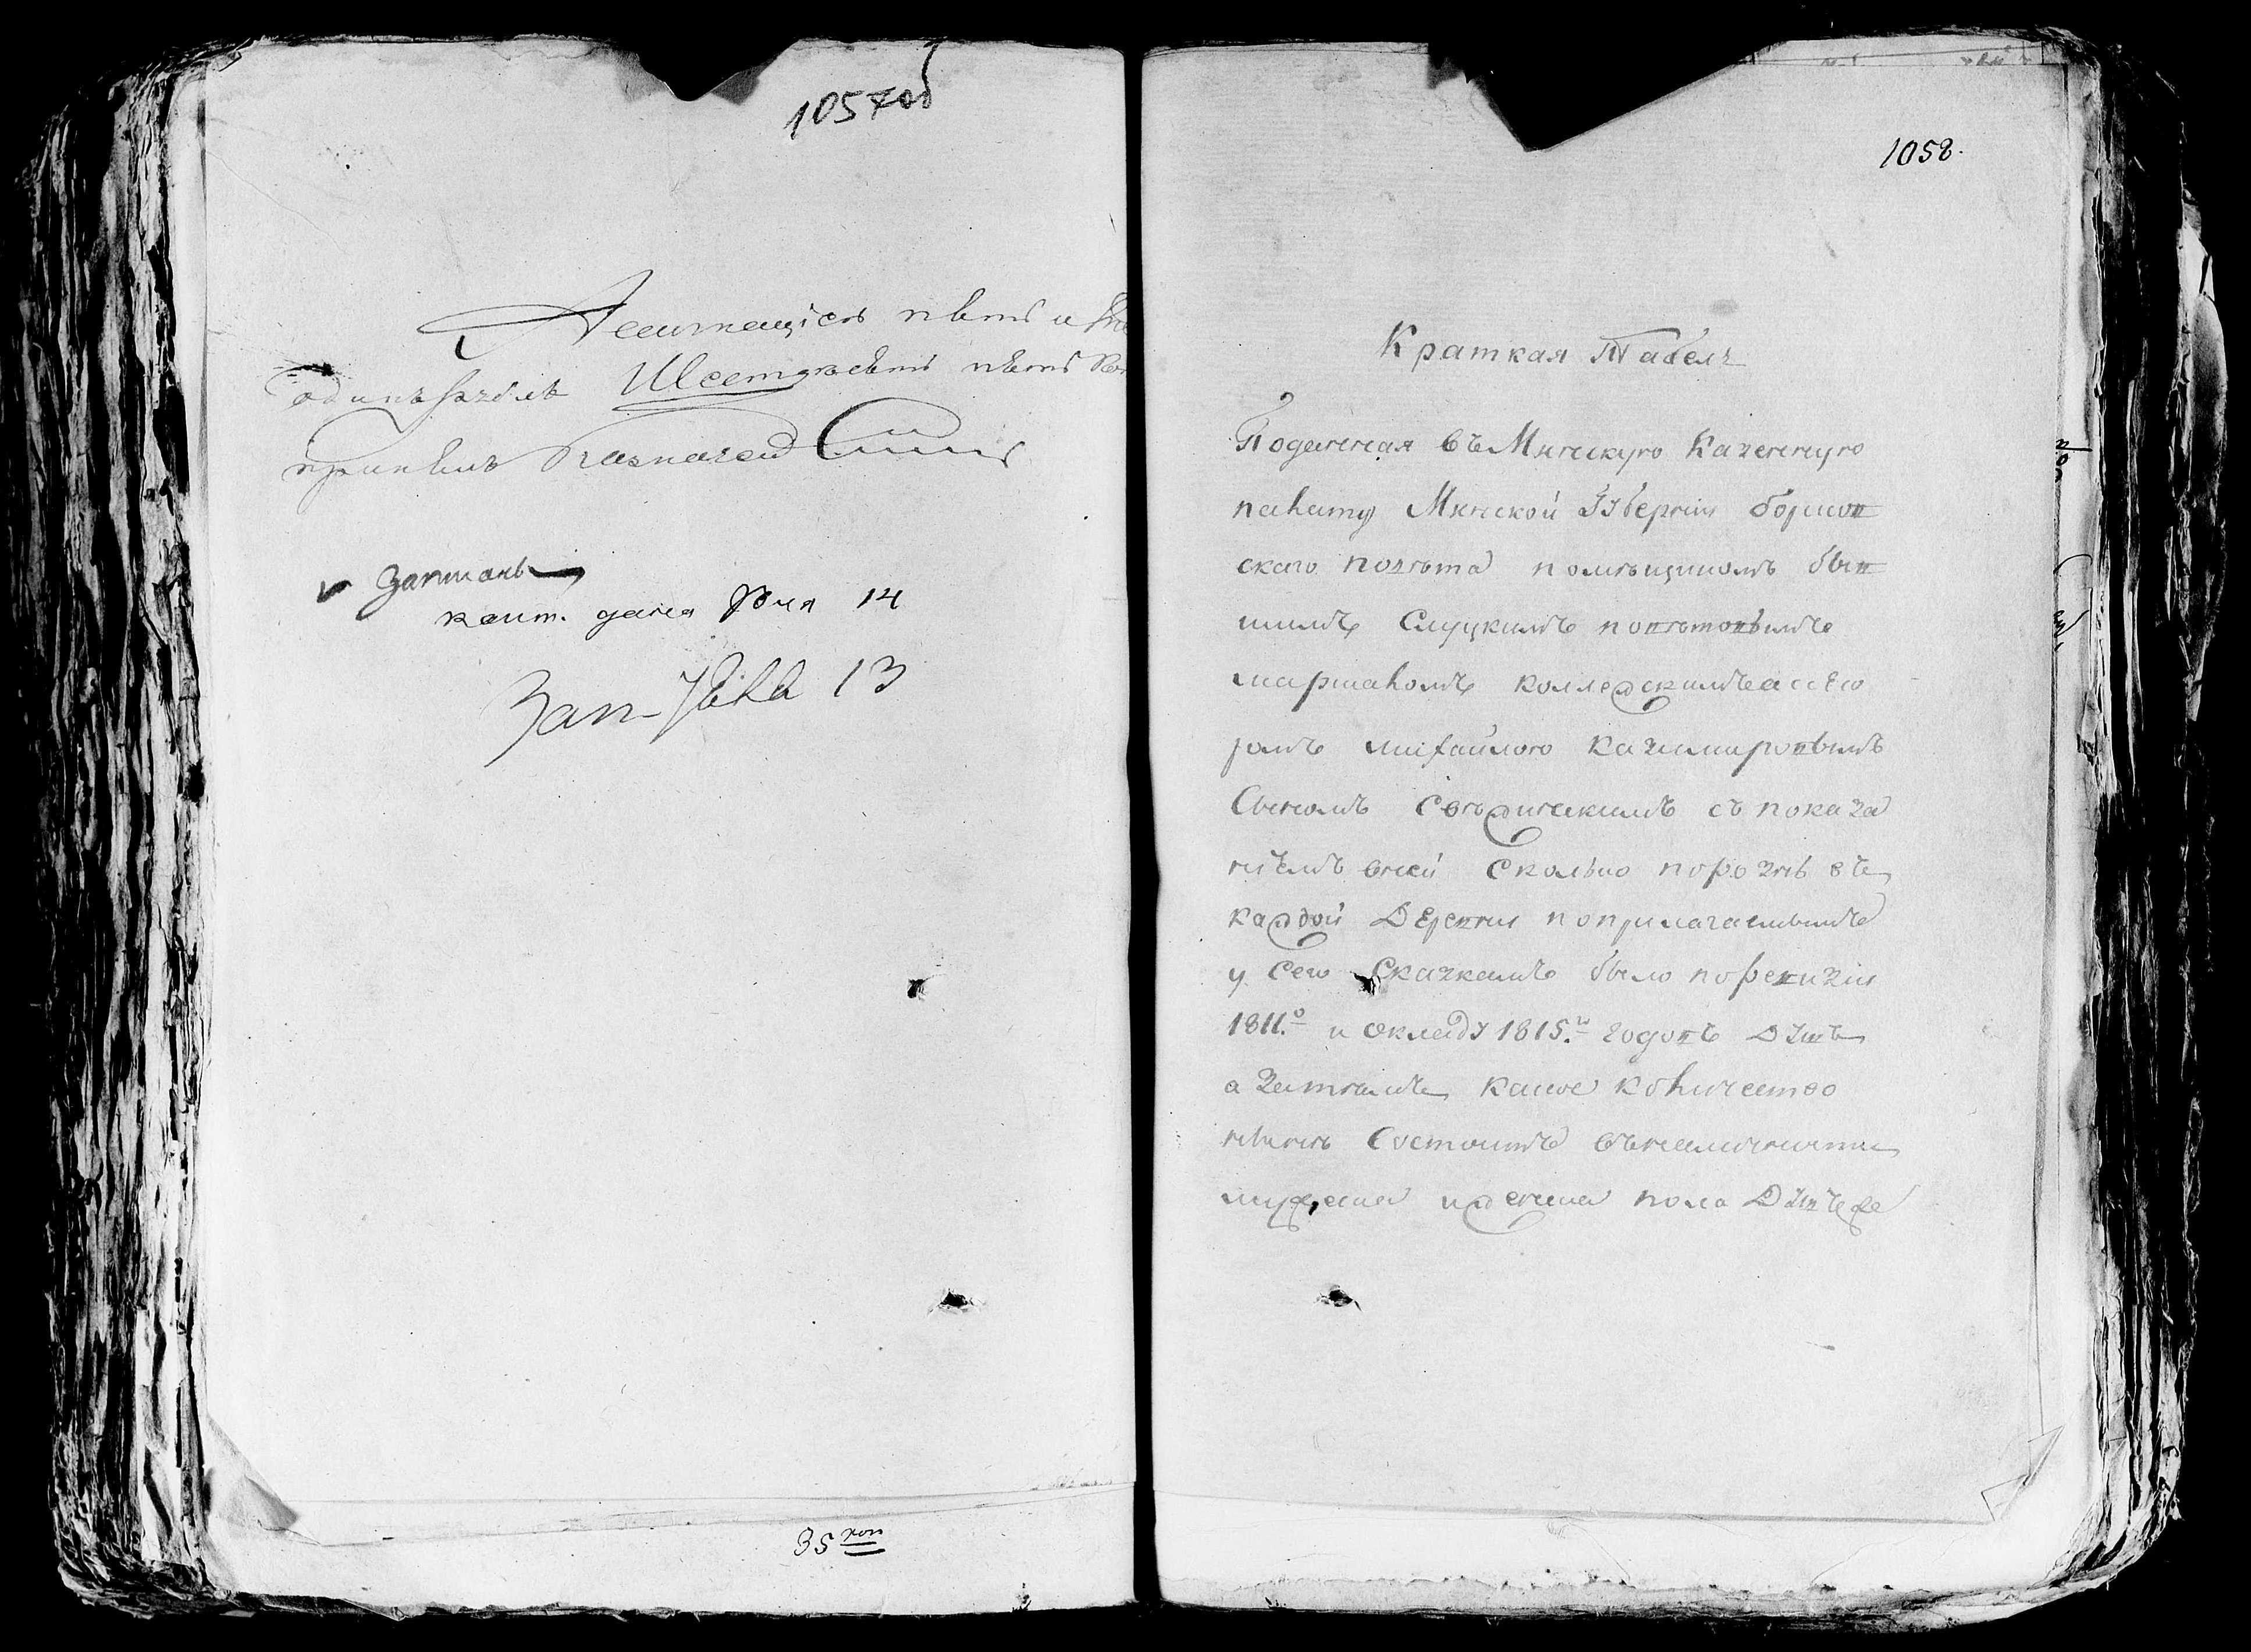 1057об
Ассигнацiею пять и
одинъ рубль Шестдесятъ пять
принялъ Казначей
Записанъ
квит. дана 14
Зап. 13
35 коп
1058.
Краткая Табель
Поданная въ Минскую Казенную
палату Минской Губернiи борисов
скаго повѣта помѣщикомъ быв
шимъ Слуцкимъ повѣтовымъ
маршаломъ коллежскимъ ассесо
ромъ михайлою казимировымъ
Сыномъ съ показа
нiемъ въ ней сколько порознь въ
каждой Деревни поприлагаемымъ
у сего Сказкамъ было поревизiи
1811.о и окладу 1815.и годовъ Душъ
а Затѣмъ какое количество
нынѣ Состоитъ въналичности
мужеска иженска пола Душъ